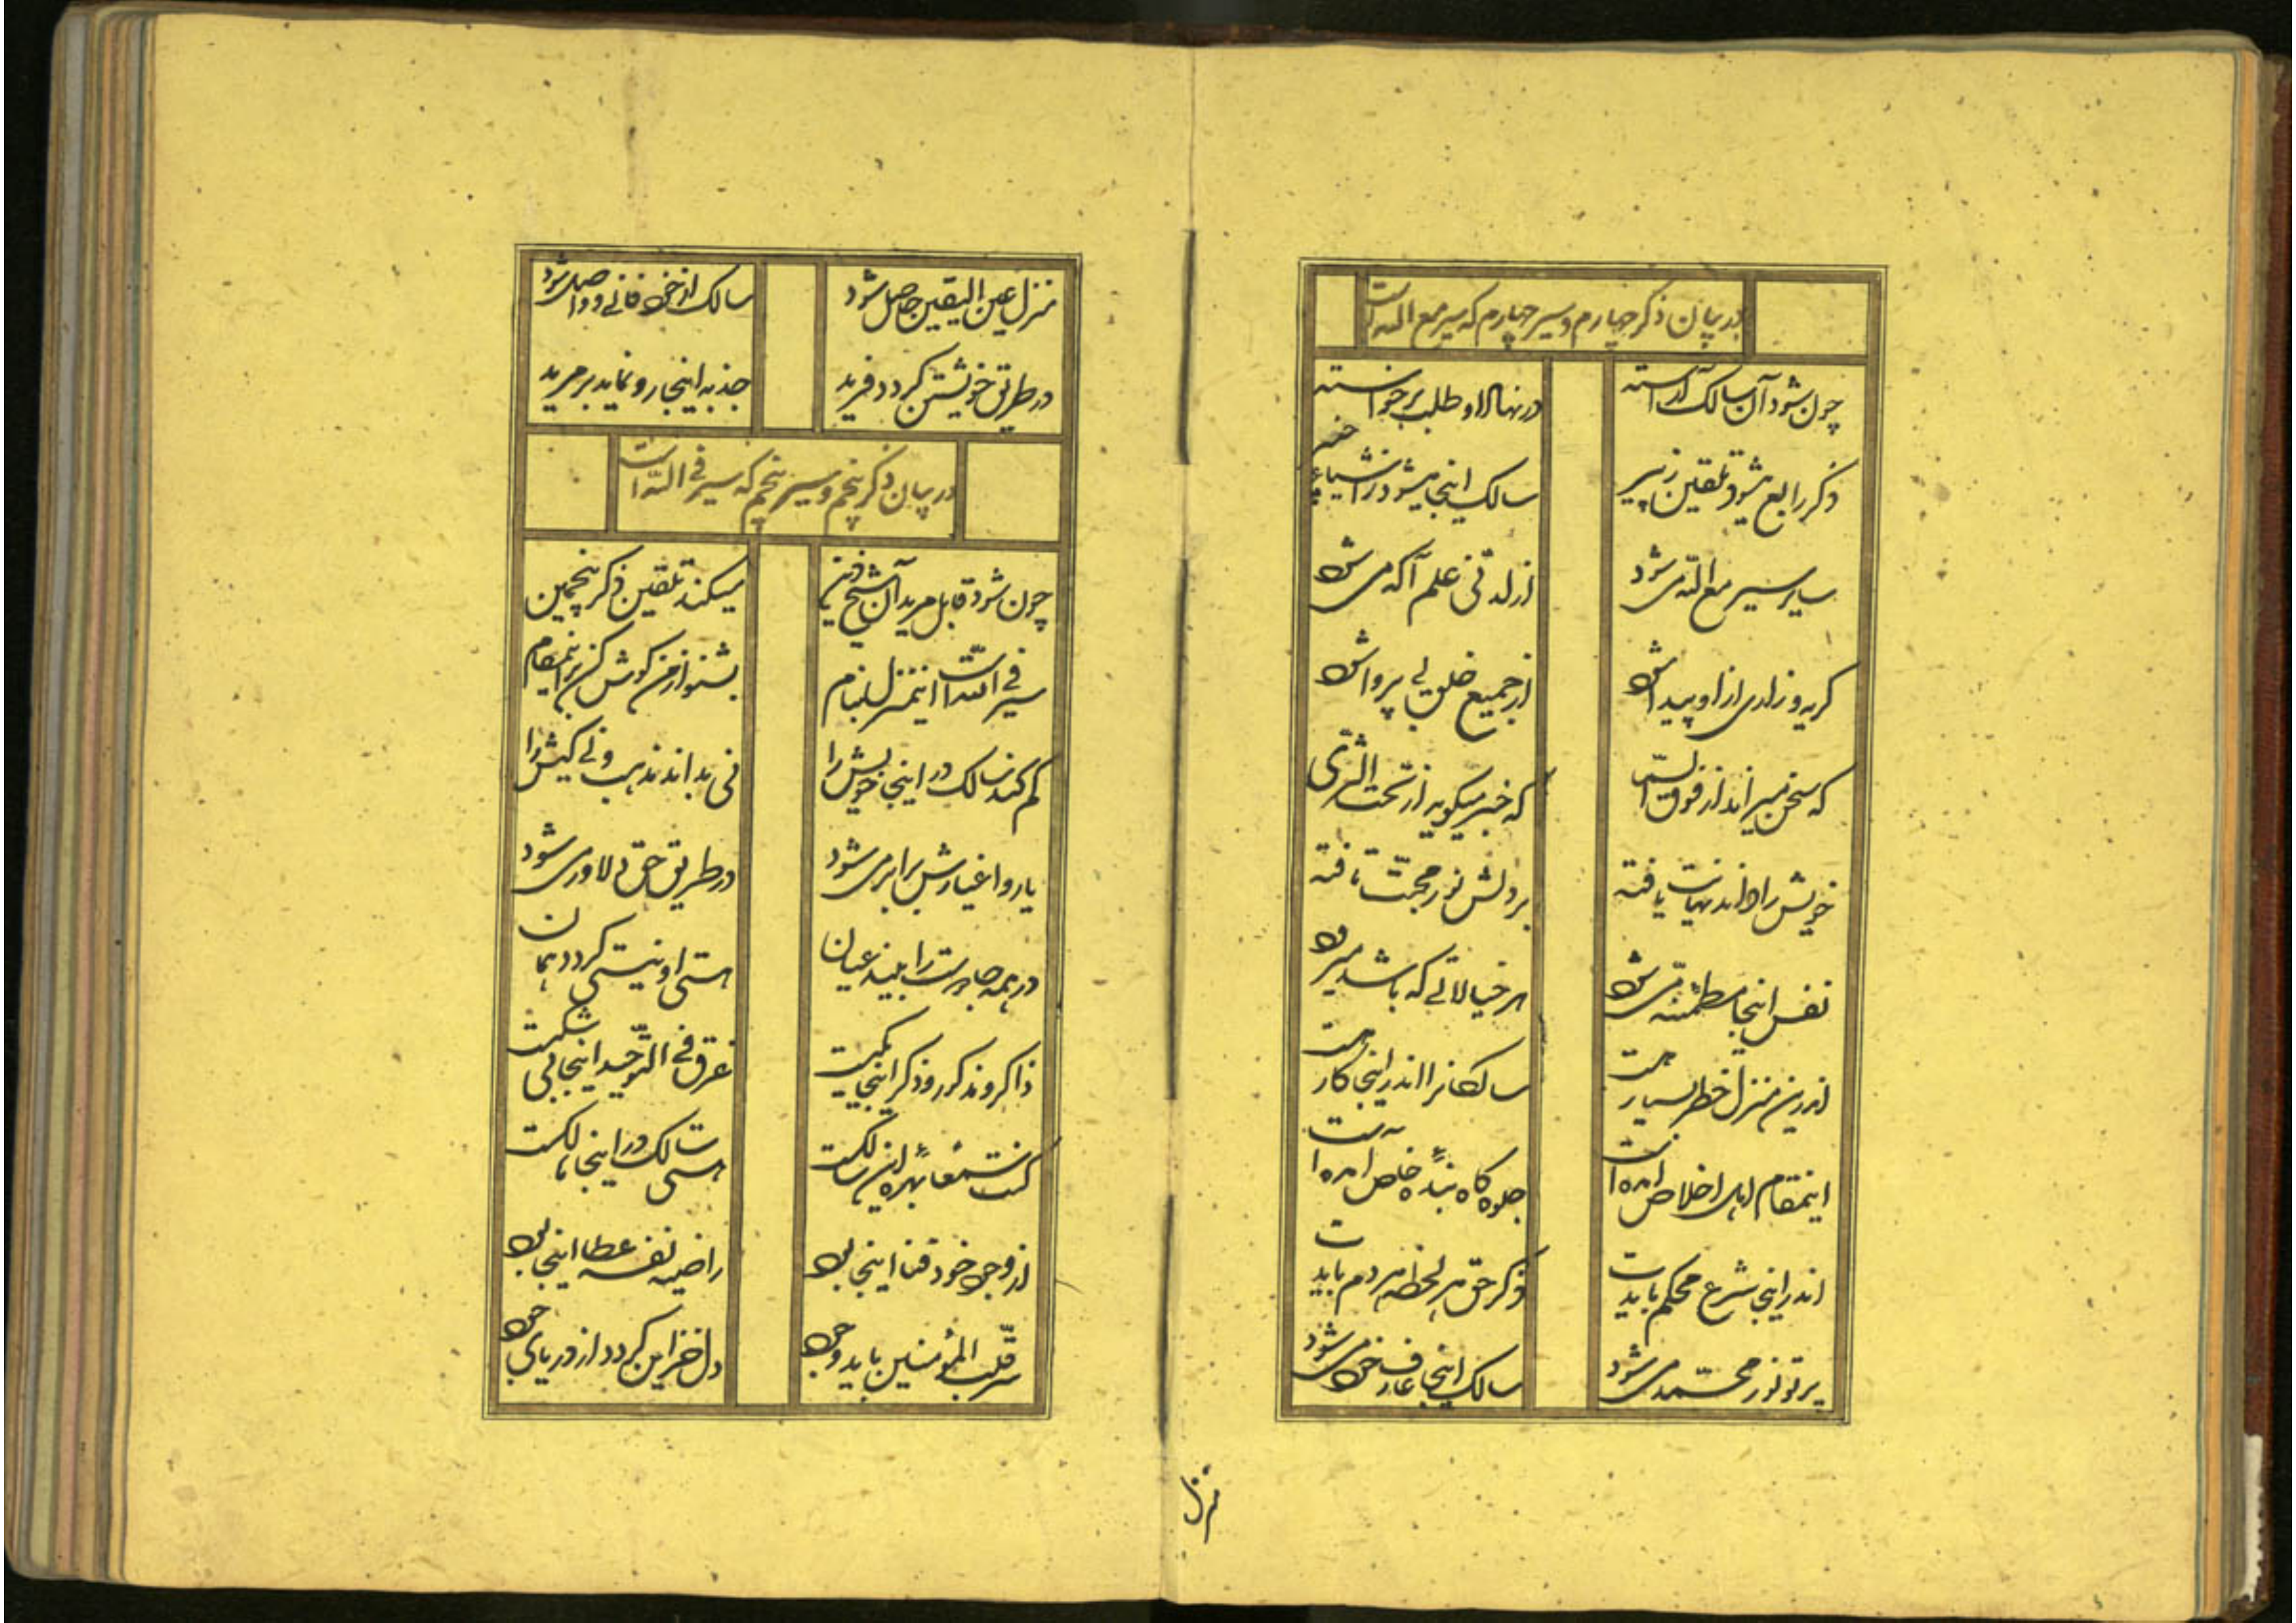 در بیان ذکر چهارم و سیر چهارم که سیر مع الله است
چون شود آن سالک آراسته در نهال او طلب برخواسته
ذکر رابع میشود تلقین ز پیر سالک اینجا میشود ز اشیا
سایر سیر مع الله می شود از لدنی علم آگه می شود
گریه و زاری از او پیدا شود از جمیع خلق بی پروا شود
که سخن میراند از فوق که خبر میگوید از تحت الثری
خویش را داند نهایت یافته بر دلش نور محبت تافته
نفس اینجا مطمئنه می شود هر خیالاتی که باشد میرود
اندرین منزل خطر بسیار هست سالکانرا اندر اینجا کار هست
اینمقام اهل اخلاص آمده است جلوه گاه بنده خاص آمده است
اندر اینجا شرع محکم بایدت ذکر حق هر لحظه هر دم بایدت
پرتو نور محمد می شود سالک اینجا عارف خود می شود
منزل
منزل عین الیقین حاصل شود سالک از خود فانی و واصل شود
در طریق خویشتن گردد فرید جذبه اینجا رو نماید بر مرید
در بیان ذکر پنجم و سیر پنجم که سیر فی الله است
چون شود قابل مرید آن شیخ دین میکند تلقین ذکر پنجمین
سیر فی الله است اینمنزل بنام بشنو از من گوش کن بر اینمقام
گم کند سالک در اینجا خویش را نی بداند مذهب و نی کیش را
یار و اغیارش برابر می شود در طریق حق دلاور می شود
در همه جا دوست را بیند عیان هستی او نیستی گردد همان
ذاکر و مذکور و ذکر اینجا یکیست غرق فی التوحید اینجا بی شکیست
کنت سمعا بهره این سالکست هستی سالک در اینجا هالکست
از وجود خود فنا اینجا بود راضیه نفسه عطا اینجا بود
سر قلب المؤمنین یابد وجود دل خزاین گردد از دریای جود